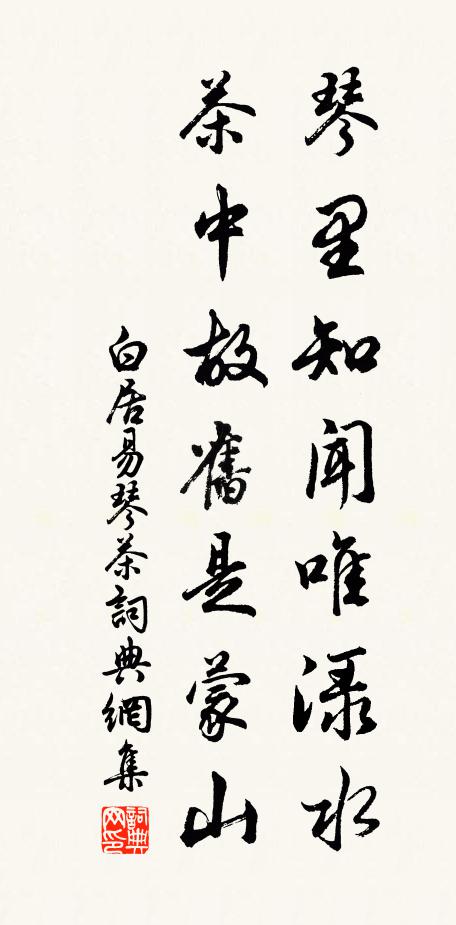 琴里知聞唯渌水
茶中故舊是蒙山
白居易琴茶詞典網集
詞典網印